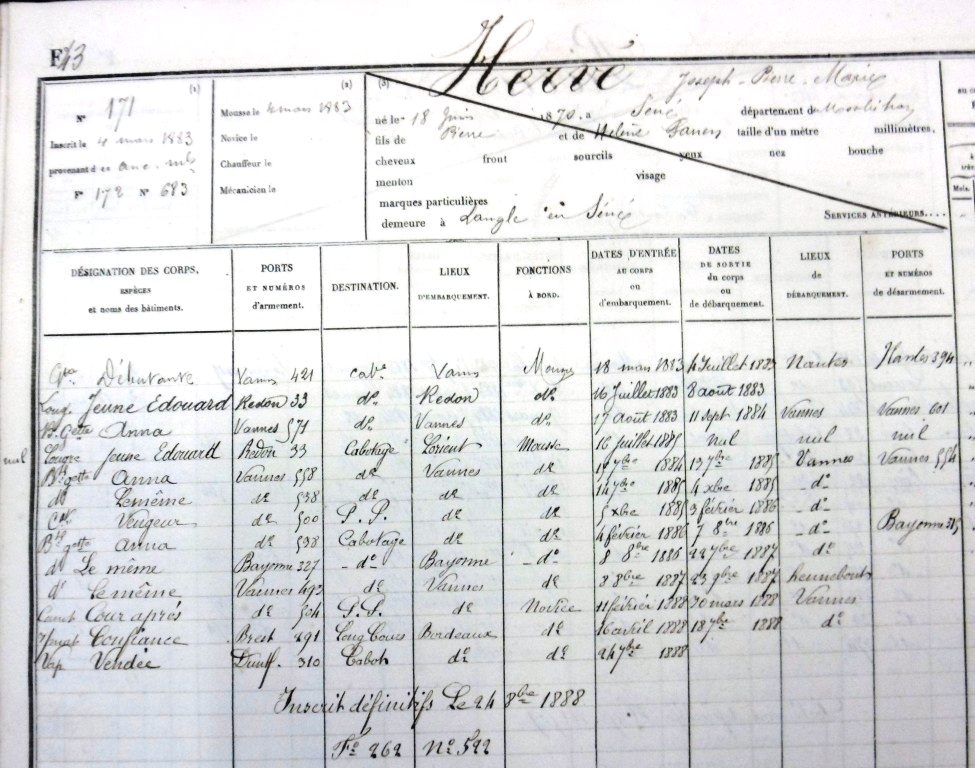 F° 43
Hervé
Joseph-Pierre-Marie
N° 171
Inscrit le 4 mars 1883
provenant d
F° 172 N° 683
(1)
(2)
Mousse le 4 mars 1883
Novice le
Chauffeur le
Mécanicien le
(3)
né le 18 Juin 1870, à Séné département de Morbihan
fils de Pierre et de Hélène taille d'un mètre millimètres,
cheveux front sourcils yeux nez bouche
menton visage
marques particulières
demeure à Langle en Séné SERVICES ANTÉRIEURS....
DÉSIGNATION DES CORPS, ESPÈCES et noms des bâtiments.
PORTS ET NUMÉROS d'armement.
DESTINATION.
LIEUX D'EMBARQUEMENT.
FONCTIONS À BORD.
DATES D'ENTRÉE AU CORPS ou d'embarquement.
DATES DE SORTIE du corps ou de débarquement.
LIEUX de DÉBARQUEMENT.
PORTS ET NUMÉROS de désarmement.
Débutante Vannes 421 cabe Vannes Mousse 18 mars 1883 4 Juillet 1883 Nantes Nantes 394
Loug. Jeune Edouard Redon 33 do Redon do 16 Juillet 1883 8 août 1883
Bk gette Anna Vannes 571 do Vannes do 17 août 1883 11 sept 1884 Vannes Vannes 601
nul Lougre Jeune Edouard Redon 33 Cabotage Lorient Mousse 16 juillet 1885 nul nul nul
Bk gette Anna Vannes 558 do Vannes do 1884 13 7bre 1885 Vannes Vannes 554
do Le même do 538 do do do 14 7bre 1885 4 xbre 1885 do
Vengeur do 500 P.P. do do 5 xbre 1885 3 février 1886 do
Bk gette Anna do 538 Cabotage do do 4 février 1886 7 8bre 1886 do Bayonne 315
do Le même Bayonne 327 do Bayonne do 8 8bre 1886 22 7bre 1887 do
do Le même Vannes 493 do Vannes do 8 8bre 1887 23 9bre 1887 hennebont
Canot Cour après do 504 P.P. do Novice 11 février 1888 30 mars 1888 Vannes
Confiance Brest 291 Long Cours Bordeaux do 16 avril 1888 18 7bre 1888 do
Vap Vendée Dunk. 310 Cabot do do 24 7bre 1888
Inscrit définitifs Le 24 8bre 1888
F° 262 N° 522